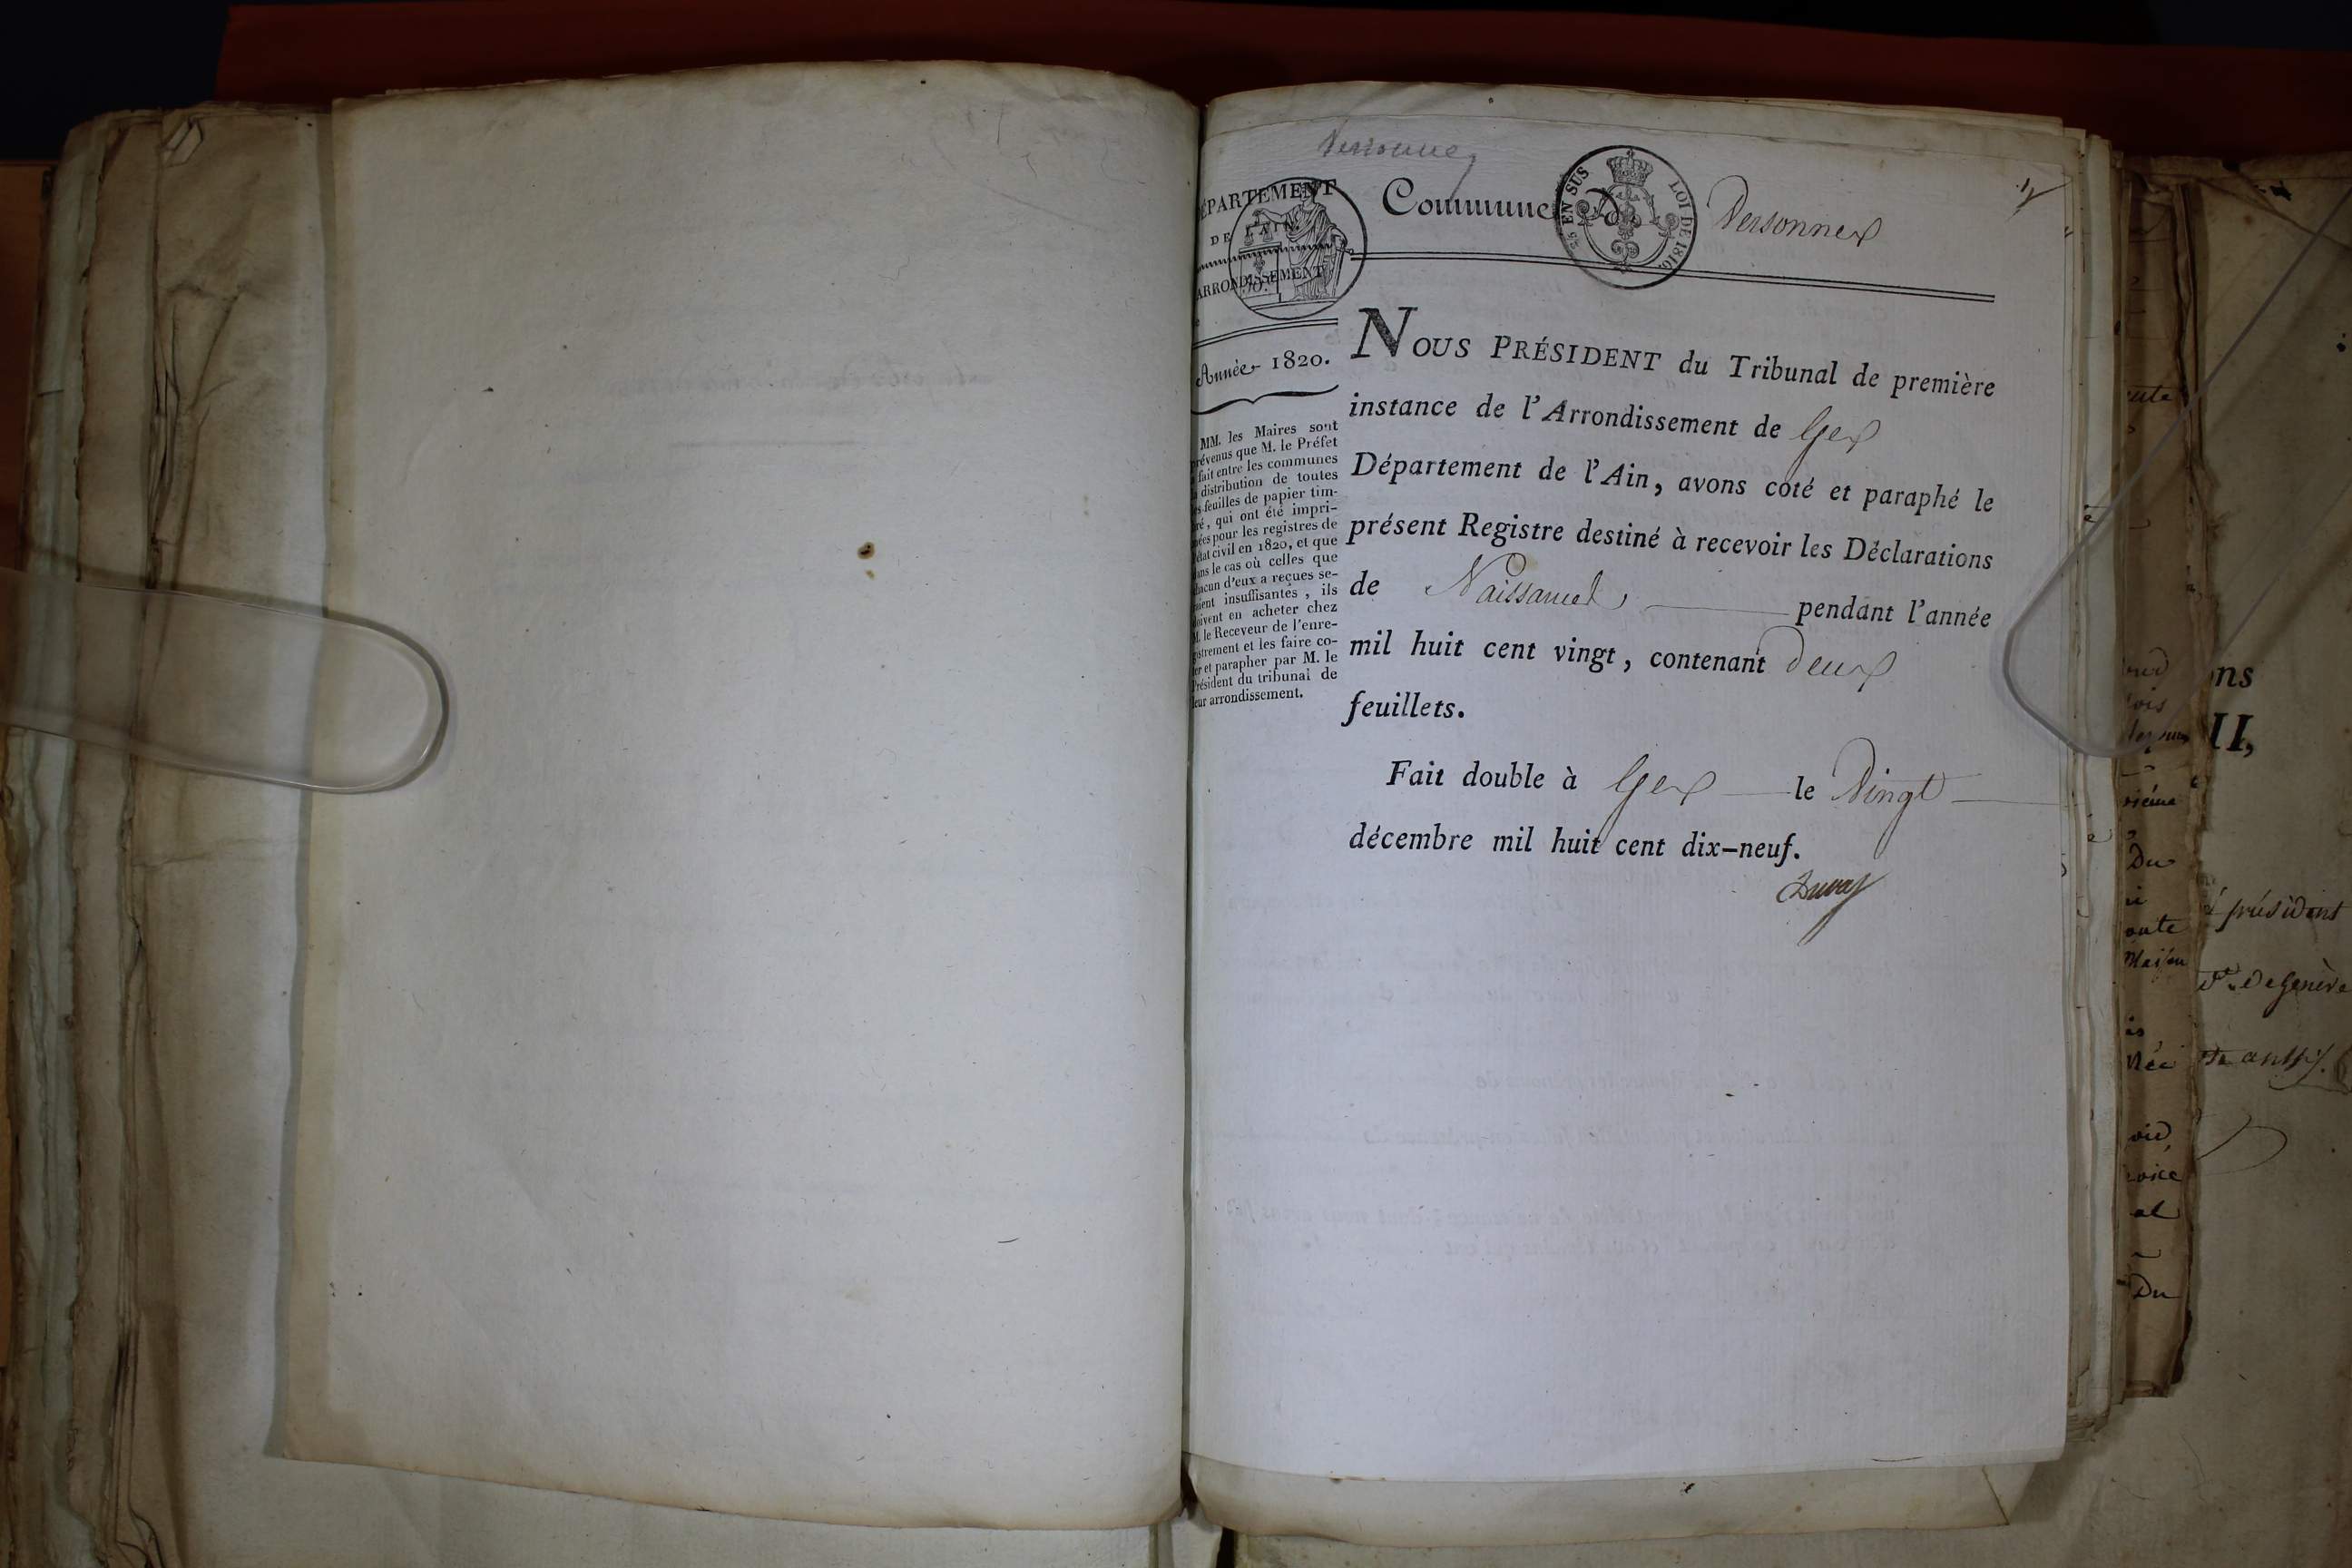 Versonnex
DÉPARTEMENT
DE L'AIN.
ARRONDISSEMENT
Commune de Versonnex
25 EN SUS
LOI DE 1816
Année 1820.
MM. les Maires sont
prévenus que M. le Préfet
a fait entre les communes
la distribution de toutes
les feuilles de papier tim-
bré, qui ont été impri-
mées pour les registres de
l'état civil en 1820, et que
dans le cas où celles que
chacun d'eux a reçues se-
raient insuffisantes, ils
doivent en acheter chez
M. le Receveur de l'enre-
gistrement et les faire co-
ter et parapher par M. le
Président du tribunal de
leur arrondissement.
NOUS PRÉSIDENT du Tribunal de première
instance de l'Arrondissement de Gex
Département de l'Ain, avons coté et paraphé le
présent Registre destiné à recevoir les Déclarations
de Naissances pendant l'année
mil huit cent vingt, contenant deux
feuillets.
Fait double à Gex le Vingt
décembre mil huit cent dix-neuf.
ons
II,
président
de Genève
Du
oute
Maison
Du